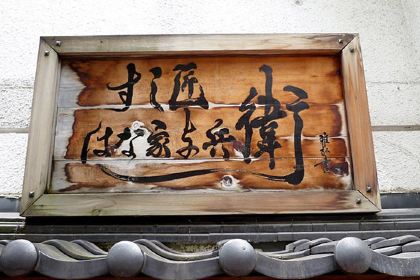 すし匠
はな家与兵衛